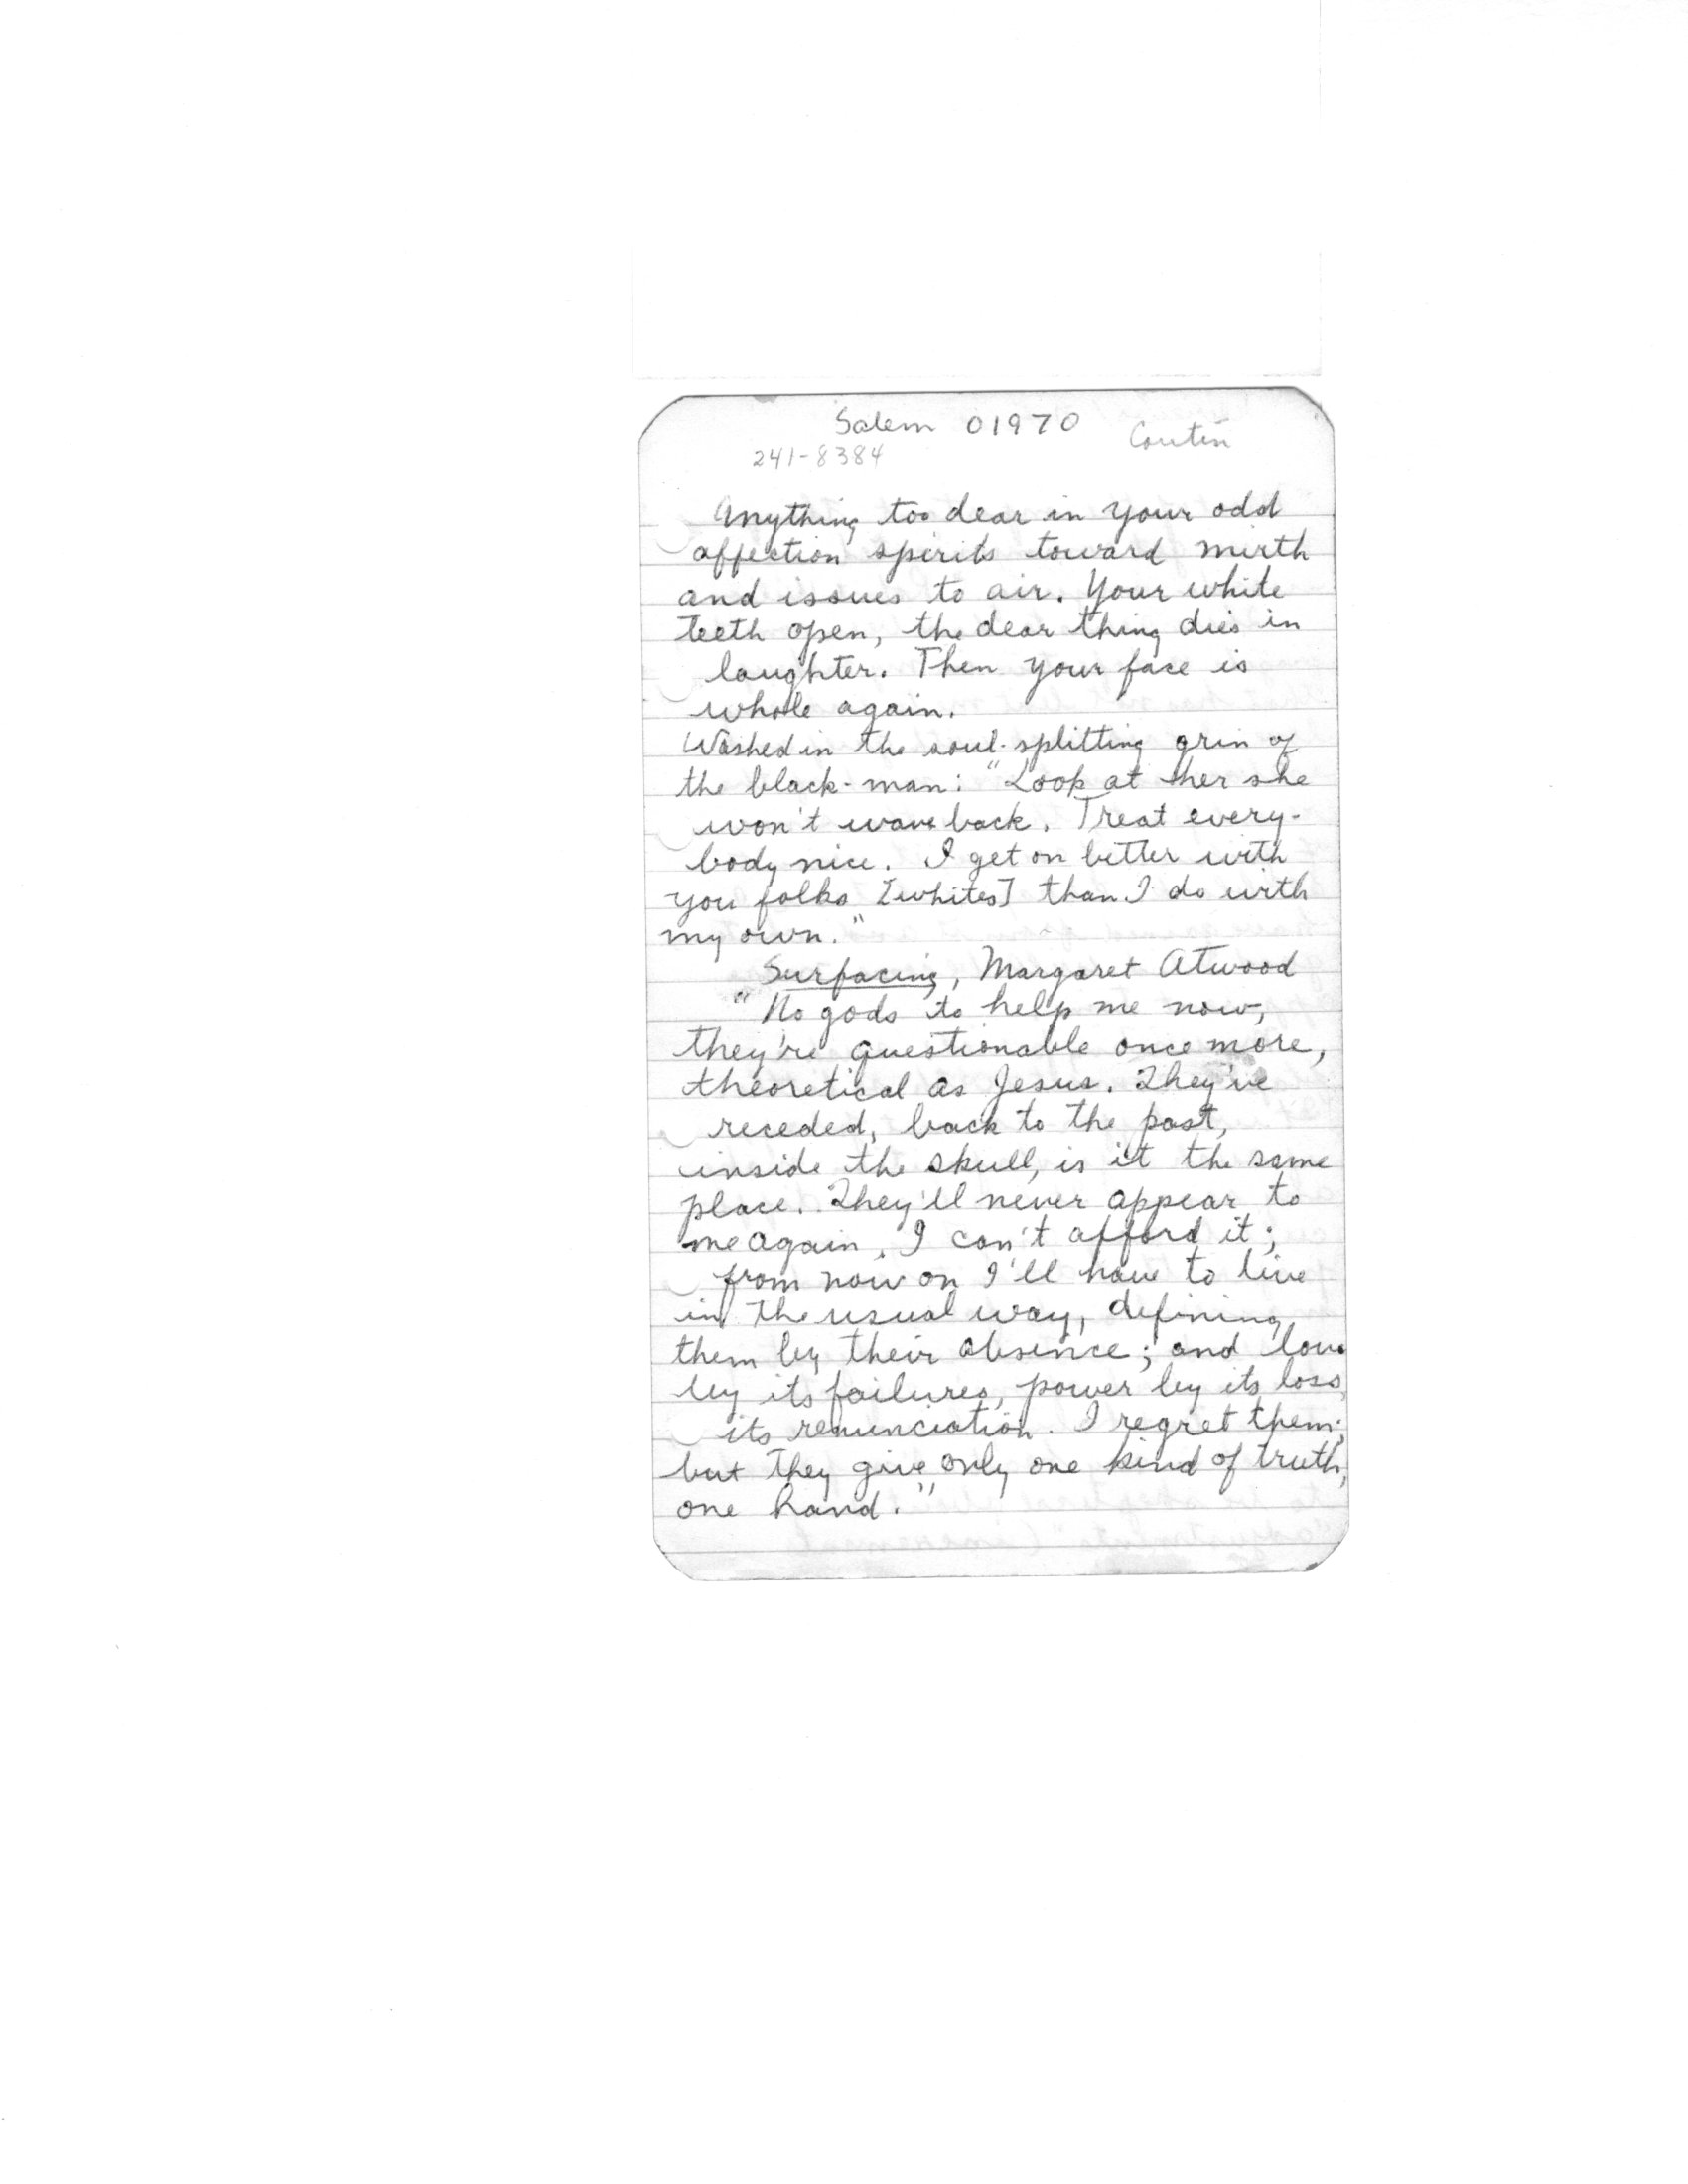 Salem 01970
241-8384
Anything too dear in your odd
affection spirits toward mirth
and issues to air. Your white
teeth open, the dear thing dies in
laughter. Then your face is
whole again.
Washed in the soul-splitting grin of
the black-man: "Look at her she
won't wave back. Treat every-
body nice. I get on better with
you folks [whites] than I do with
my own."
Surfacing, Margaret Atwood
"No gods to help me now,
they're questionable once more,
theoretical as Jesus. They've
receded, back to the past,
inside the skull, is it the same
place. They'll never appear to
me again, I can't afford it;
from now on I'll have to live
in the usual way, defining
them by their absence; and love
by its failures, power by its loss,
its renunciation. I regret them;
but they give only one kind of truth,
one hand."